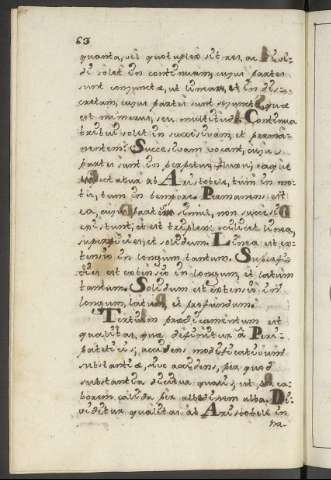 63
quanta, vel quotuplex sit res, ac
di solet in continuam, cujus partes
sunt conjunctæ, ut lineam, et in dis-
cretam, cujus partes sunt sejunctæ, quæ
est numerus, seu multitudo. Continua
tribui solet in successivam et perma-
nentem. Successivam vocant, cujus
partes sunt in perpetuo fluxu, eaque
ab Aristotele, tum in mo-
tu, tum in tempore. Permanens est
ea, cujus partes simul, non successive
existunt, et est triplex, scilicet linea,
superficies et solidum. Linea est ex-
tensio in longum tantum. Superfi-
cies est extensio in longum, et latum
tantum. Solidum est extensio in
longum, latum et profundum.
Tertium prædicamentum est
qualitas, quæ definitur a Peri-
pateticis, accidens modificativum
substantiæ, sive accidens, per quod
substantia dicitur qualis, ut
calida per albedinem alba. Di-
viditur qualitas ab Aristotele in
ha-